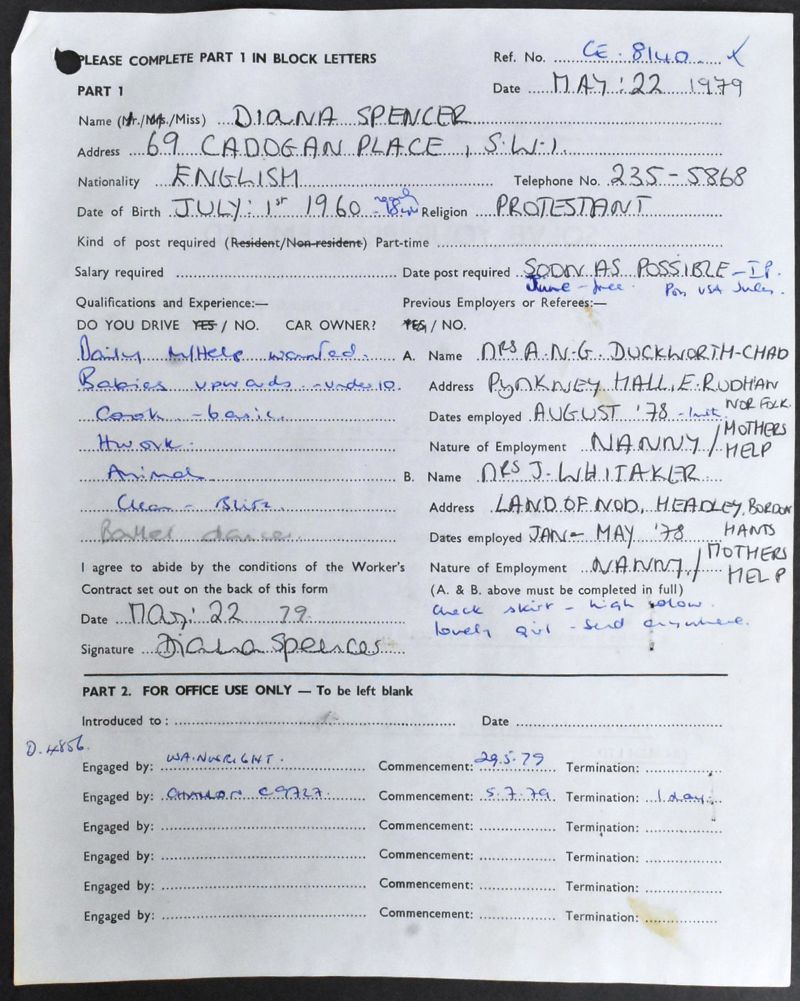 PLEASE COMPLETE PART 1 IN BLOCK LETTERS Ref. No. CE. 8140
PART 1 Date MAY: 22 1979
Name (Mr./Mrs./Miss) DIANA SPENCER
Address 69 CADOGAN PLACE, S.W.1.
Nationality ENGLISH Telephone No. 235-5868
Date of Birth JULY: 1st 1960 Religion PROTESTANT
Kind of post required (Resident/Non-resident) Part-time
Salary required Date post required SOON AS POSSIBLE
June - free. Poss USA July.
Qualifications and Experience:— Previous Employers or Referees:—
DO YOU DRIVE YES / NO. CAR OWNER? YES / NO.
Daily M/Help wanted. A. Name MRS A.N.G. DUCKWORTH-CHAD
Babies upwards - under 10. Address PYNKNEY HALL, E. RUDHAM NORFOLK.
Cook - basic. Dates employed AUGUST '78
Hwork. Nature of Employment NANNY / MOTHERS HELP
Animals B. Name MRS J. WHITAKER
Clean - Blitz. Address LAND OF NOD, HEADLEY, BORDON HANTS
Ballet dance. Dates employed JAN - MAY '78
I agree to abide by the conditions of the Worker's Nature of Employment NANNY / MOTHERS HELP
Contract set out on the back of this form (A. & B. above must be completed in full)
Date May: 22 79. check skirt - high
Signature Diana Spencer lovely girl - send anywhere.
PART 2. FOR OFFICE USE ONLY — To be left blank
Introduced to : Date
D.4856.
Engaged by: WAINWRIGHT. Commencement: 29.5.79 Termination:
Engaged by: C9727. Commencement: 5.7.79 Termination: 1 day.
Engaged by: Commencement: Termination:
Engaged by: Commencement: Termination:
Engaged by: Commencement: Termination:
Engaged by: Commencement: Termination: